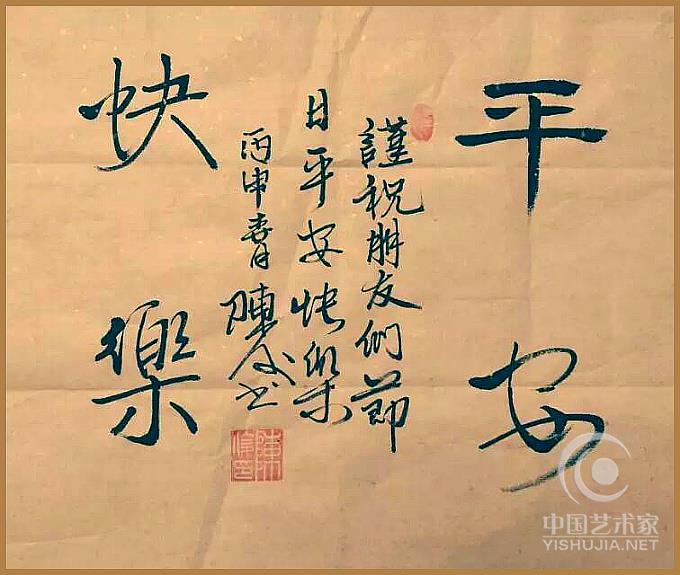 平安
謹祝朋友們節
日平安快樂
丙申春月陳书
快樂
中国艺术家
YISHUJIA.NET